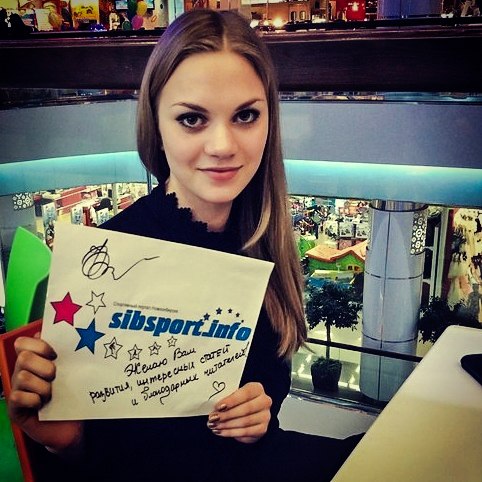 Спортивный портал Новосибирска
sibsport.info
Желаю Вам
развития, интересных статей
и благодарных читателей!